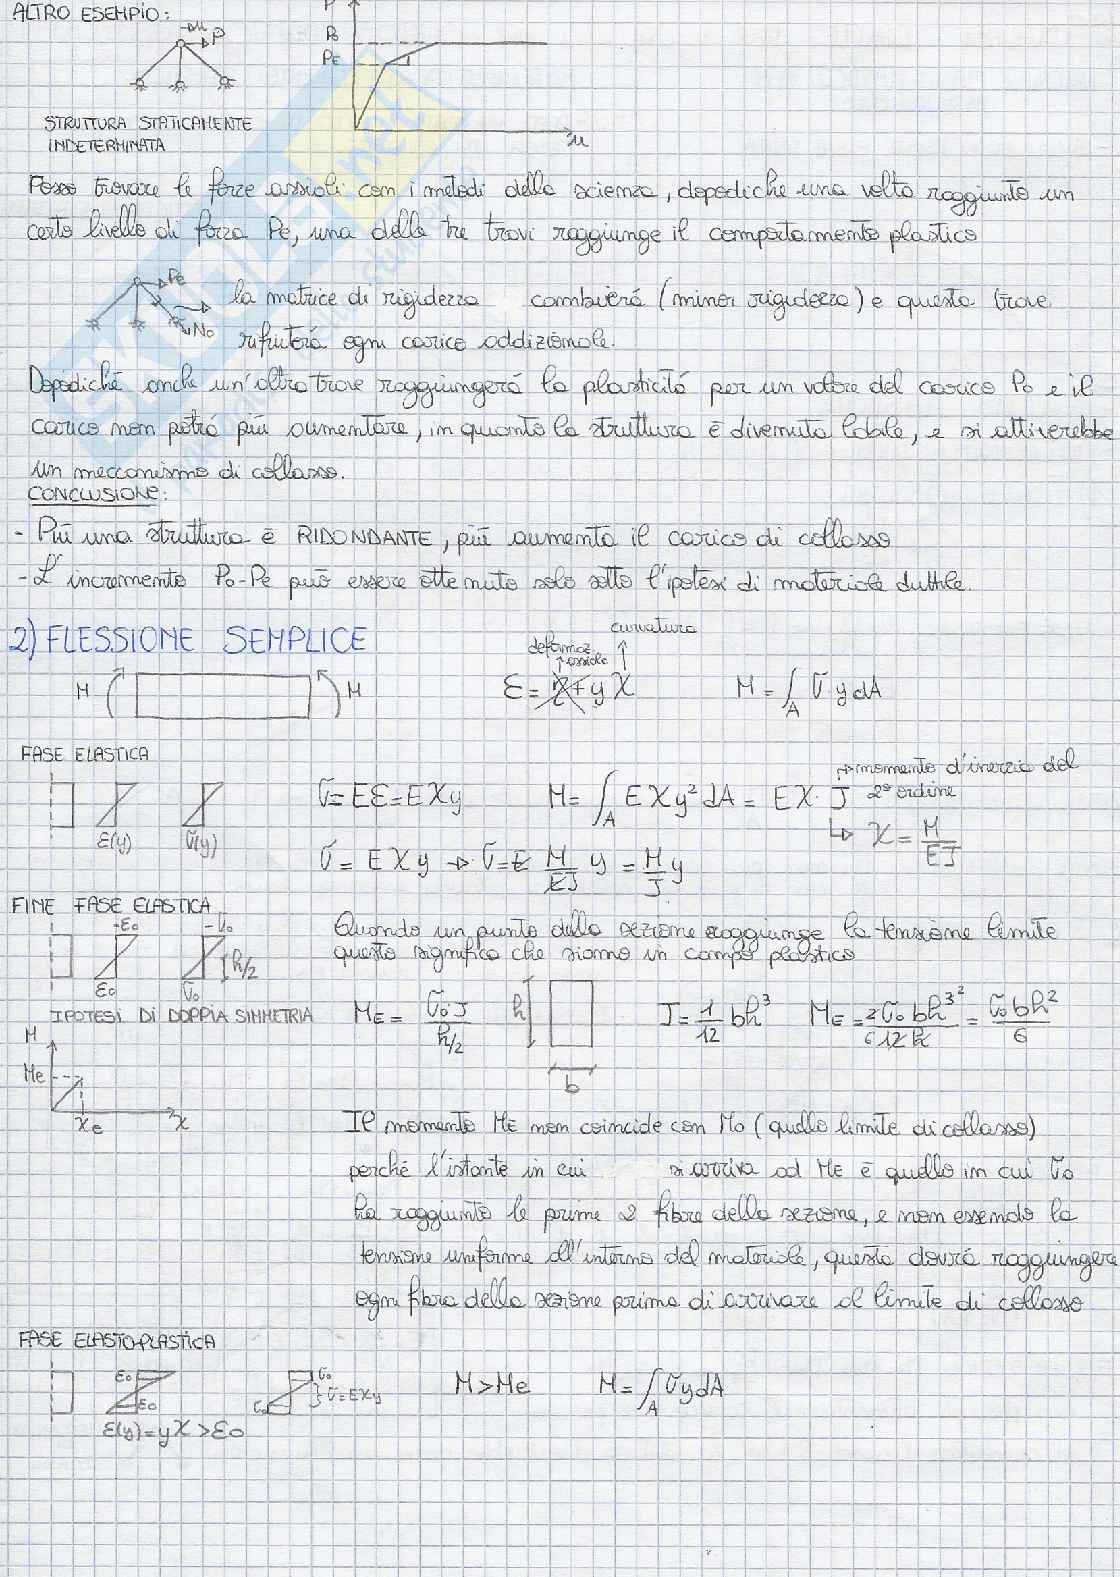 ALTRO ESEMPIO:
→u
P
P
P₀
PE
u
STRUTTURA STATICAMENTE
INDETERMINATA
Posso trovare le forze assiali con i metodi della scienza, dopodiche una volta raggiunto un
certo livello di forza Pe, una delle tre travi raggiunge il comportamento plastico
Pe
N₀
la matrice di rigidezza cambierá (minor rigidezza) e questa trave
rifiuterá ogni carico addizionale.
Dopodiché anche un'altra trave raggiungerá la plasticitá per un valore del carico P₀ e il
carico non potrá piú aumentare, in quanto la struttura é divenuta labale, e si attiverebbe
un meccanismo di collasso.
CONCLUSIONE:
- Piú una struttura é RIDONDANTE, piú aumenta il carico di collasso
- L'incremento P₀-Pe puó essere ottenuto solo sotto l'ipotesi di materiale duttile.
2) FLESSIONE SEMPLICE
curvatura
deformaz.
assiale
M
M
ε = + y χ
M = ∫_A σ y dA
FASE ELASTICA
ε(y)
σ(y)
σ = Eε = Eχy
M = ∫_A E χ y² dA = E χ · J
→ momento d'inerzia del
2° ordine
↳ χ = M/EJ
σ = E χ y → σ = E M/EJ y = M/J y
FINE FASE ELASTICA
-ε₀
-σ₀
h/2
ε₀
σ₀
Quando un punto della sezione raggiunge la tensione limite
questo significa che siamo in campo plastico
IPOTESI DI DOPPIA SIMMETRIA
ME = σ₀J / h/2
h
b
J = 1/12 bh³
ME = 2σ₀bh³² / 6 12 h = σ₀bh²/6
M
Me
χe
χ
Il momento ME non coincide con M₀ (quello limite di collasso)
perché l'istante in cui si arriva ad ME é quello in cui σ₀
ha raggiunto le prime 2 fibre della sezione, e non essendo la
tensione uniforme all'interno del materiale, questa dovrá raggiungere
ogni fibra della sezione prima di arrivare al limite di collasso
FASE ELASTO-PLASTICA
ε₀
ε₀
σ₀
σ = Eχy
σ₀
ε(y) = yχ > ε₀
M > Me
M = ∫_A σ y dA
SKUOLA.net